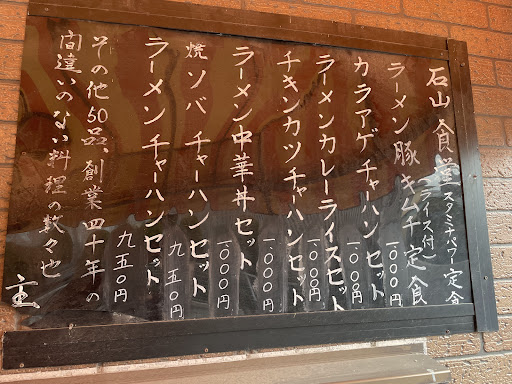 石山食堂 スタミナパワー定食
ラーメン豚キムチ定食 (ライス付) 一、〇〇〇円
カラアゲチャーハンセット 一、〇〇〇円
ラーメンカレーライスセット 一、〇〇〇円
チキンカツチャーハンセット 一、〇〇〇円
ラーメン中華丼セット 一、〇〇〇円
焼ソバチャーハンセット 九五〇円
ラーメンチャーハンセット 九五〇円
その他50品創業四十年の
間違いのない料理の数々也 主